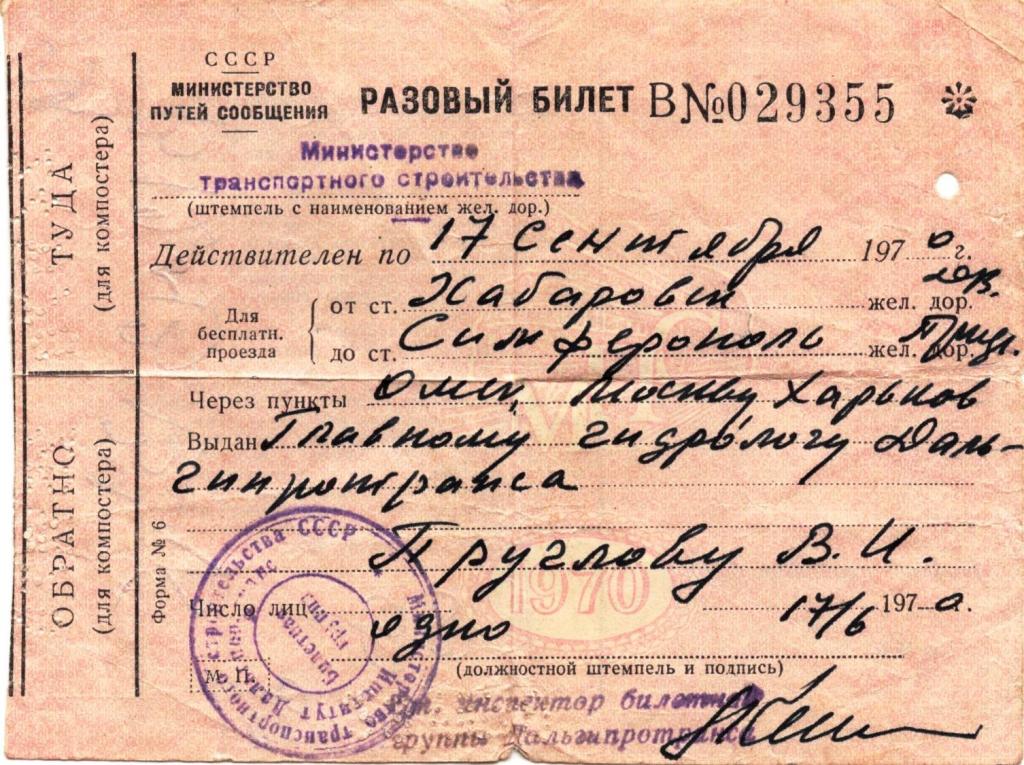 СССР
МИНИСТЕРСТВО
ПУТЕЙ СООБЩЕНИЯ
РАЗОВЫЙ БИЛЕТ В№029355
Министерство
транспортного строительства
(штемпель с наименованием жел. дор.)
Действителен по 17 сентября 1970 г.
Для бесплатн. проезда
от ст. Хабаровск жел. дор.
до ст. Симферополь жел. дор.
Через пункты Омск, Москву Харьков
Выдан Главному гидрологу Даль-
гипротранса
Пруглову В. И.
Число лиц одно 17/6 1970 г.
М. П.
(должностной штемпель и подпись)
инспектор билетной
группы Дальгипротранса
Форма № 6
ТУДА
(для компостера)
ОБРАТНО
(для компостера)
1970
Министерство транспортного строительства СССР
Институт
Билетная